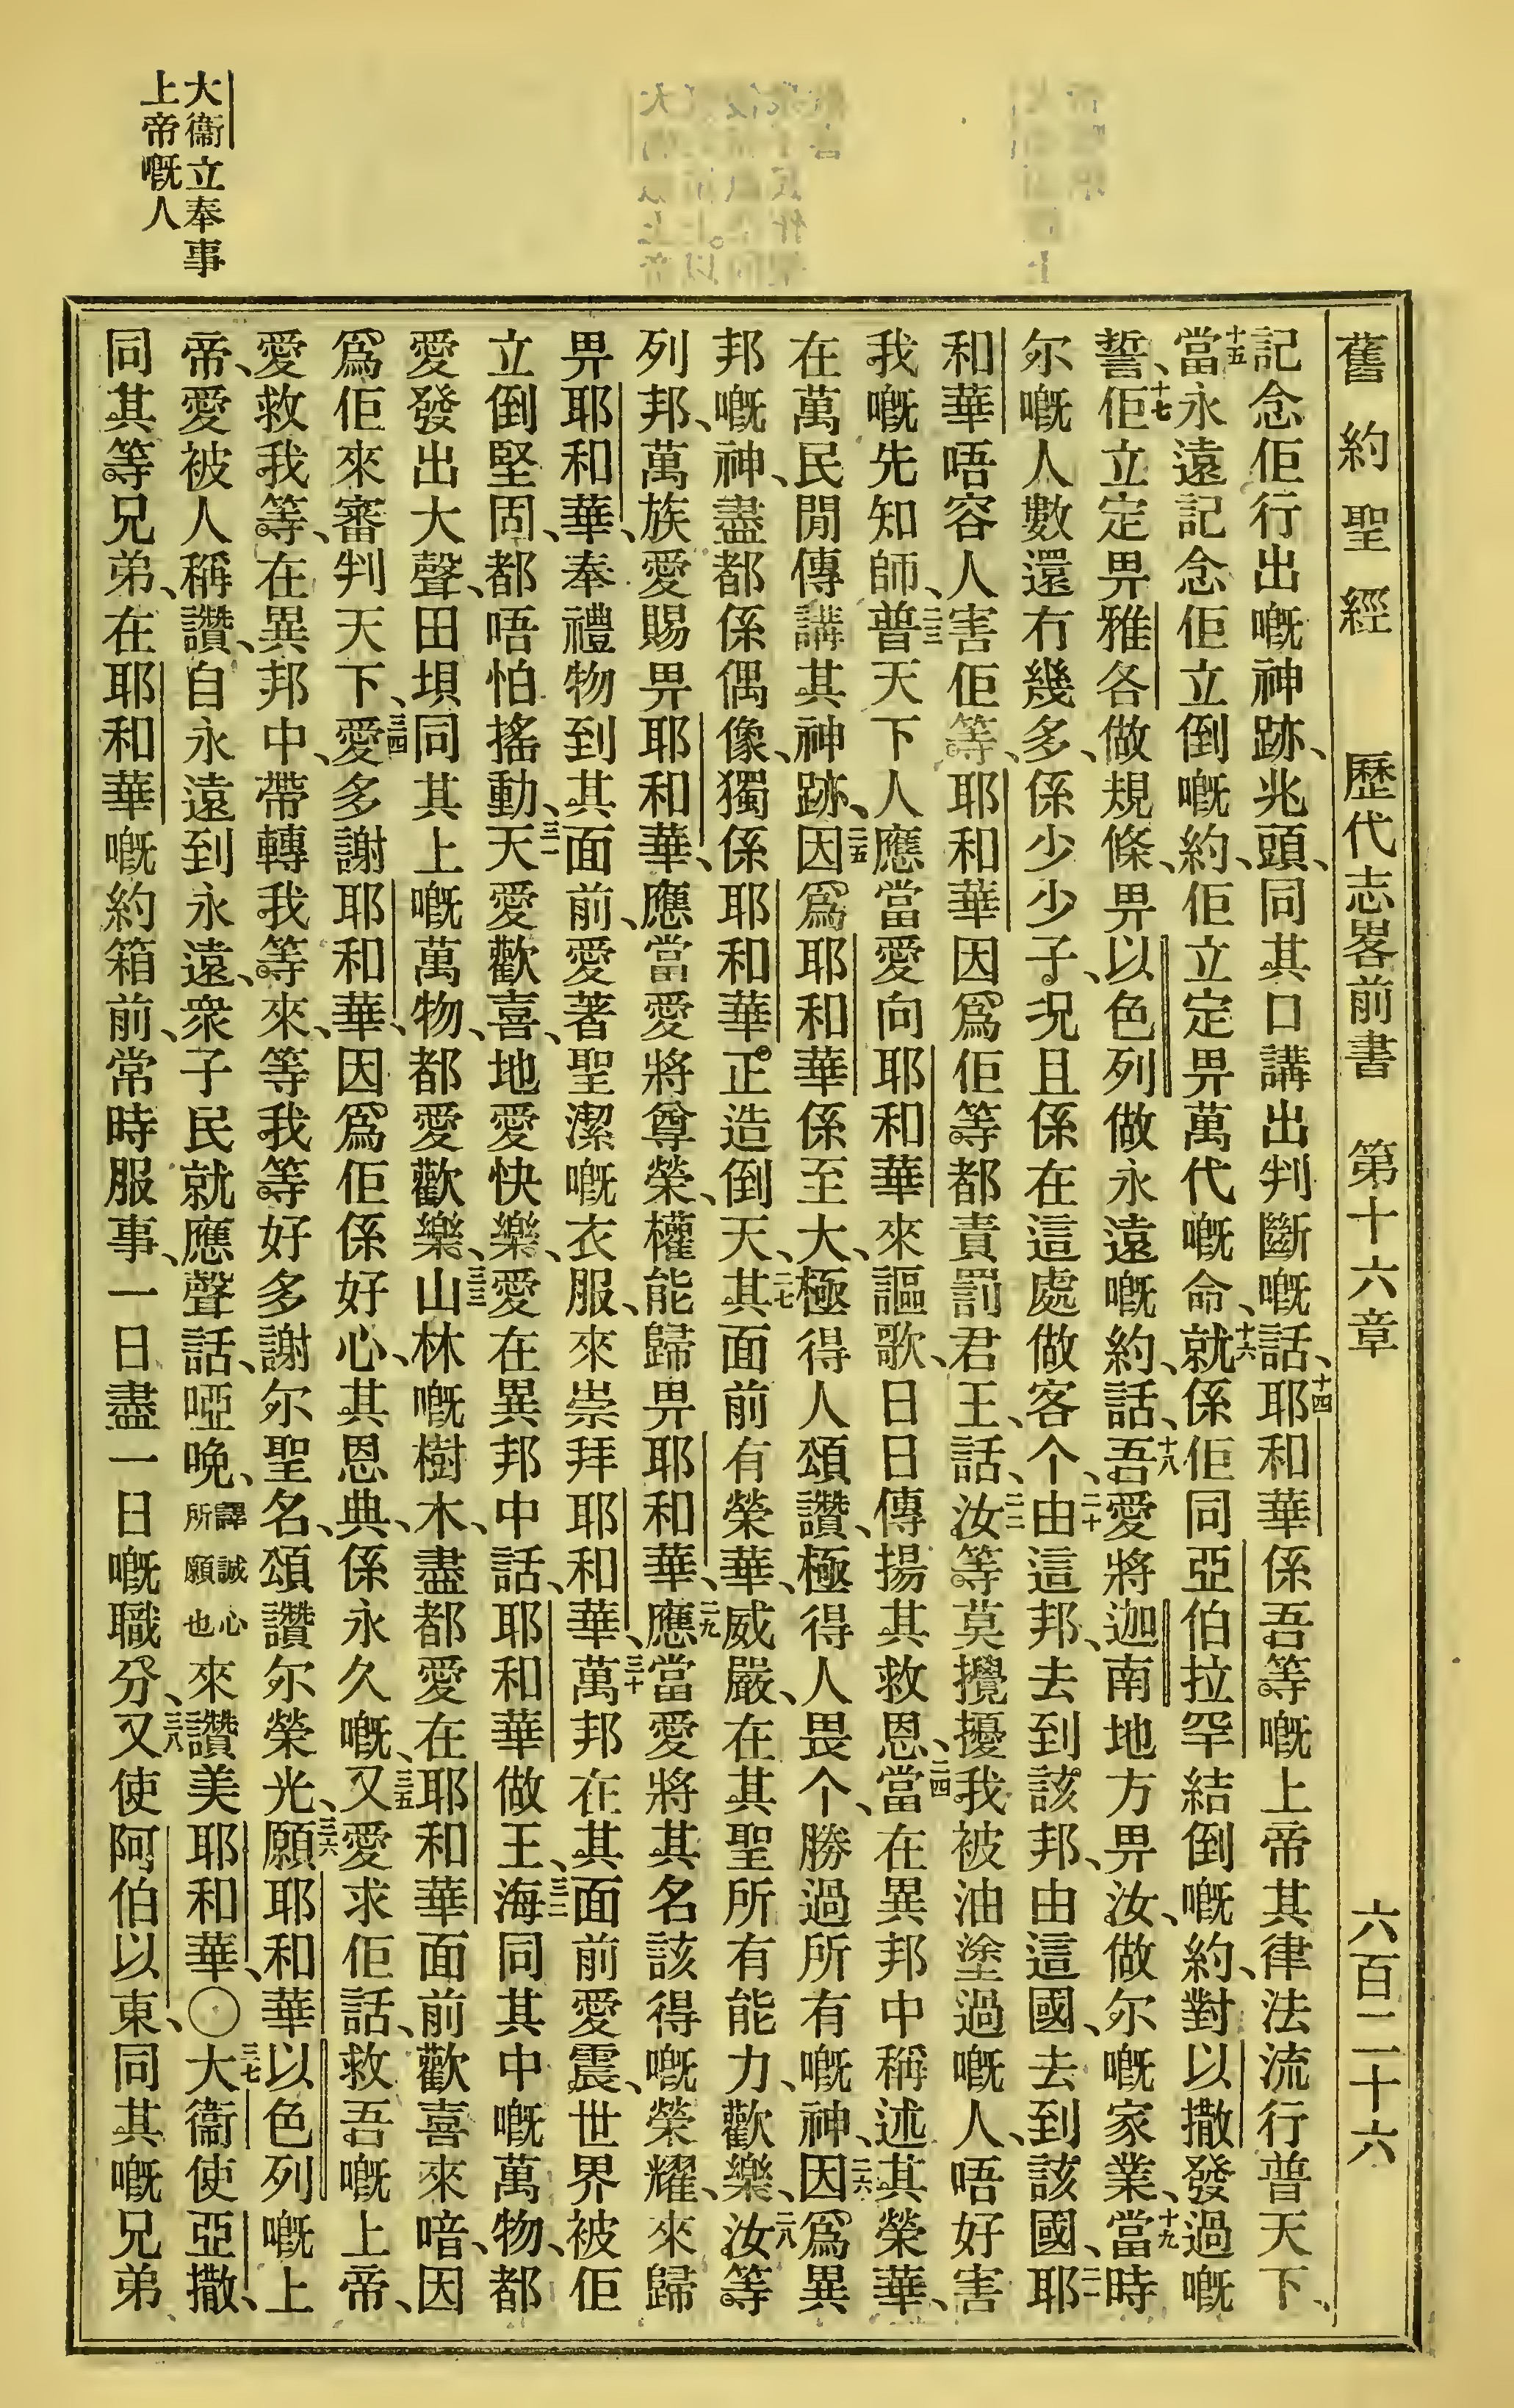 舊約聖經　歷代志畧前書　第十六章　六百二十六
記念佢行出嘅神跡、兆頭、同其口講出判斷嘅話、十四耶和華係吾等嘅上帝其律法流行普天下、
十五當永遠記念佢立倒嘅約、佢立定畀萬代嘅命、十六就係佢同亞伯拉罕結倒嘅約、對以撒發過嘅
誓、十七佢立定畀雅各做規條、畀以色列做永遠嘅約、話、十八吾愛將迦南地方畀汝、做尔嘅家業、十九當時
尔嘅人數還冇幾多、係少少子、況且係在這處做客个、二十由這邦、去到該邦、由這國、去到該國、二一耶
和華唔容人害佢等、耶和華因爲佢等都責罰君王、話、二二汝等莫攪擾我被油塗過嘅人、唔好害
我嘅先知師、二三普天下人應當愛向耶和華來謳歌、日日傳揚其救恩、二四當在異邦中稱述其榮華、
在萬民閒傳講其神跡、二五因爲耶和華係至大、極得人頌讚、極得人畏个、勝過所有嘅神、二六因爲異
邦嘅神、盡都係偶像、獨係耶和華正造倒天、二七其面前有榮華、威嚴、在其聖所有能力、歡樂、二八汝等
列邦、萬族愛賜畀耶和華、應當愛將尊榮、權能歸畀耶和華、二九應當愛將其名該得嘅榮耀、來歸
畀耶和華、奉禮物到其面前、愛著聖潔嘅衣服、來崇拜耶和華、三十萬邦在其面前愛震、世界被佢
立倒堅固、都唔怕搖動、三一天愛歡喜、地愛快樂、愛在異邦中話、耶和華做王、三二海同其中嘅萬物、都
愛發出大聲、田埧同其上嘅萬物、都愛歡樂、三三山林嘅樹木、盡都愛在耶和華面前歡喜來喑、因
爲佢來審判天下、三四愛多謝耶和華、因爲佢係好心、其恩典、係永久嘅、三五又愛求佢話、救吾嘅上帝、
愛救我等、在異邦中、帶轉我等來、等我等好多謝尔聖名、頌讚尔榮光、三六願耶和華以色列嘅上
帝、愛被人稱讚、自永遠到永遠、衆子民就應聲話、啞晚、譯誠心所願也來讚美耶和華、〇三七大衞使亞撒、
同其等兄弟、在耶和華嘅約箱前、常時服事、一日盡一日嘅職分、三八又使阿伯以東、同其嘅兄弟
大衞立奉事
上帝嘅人